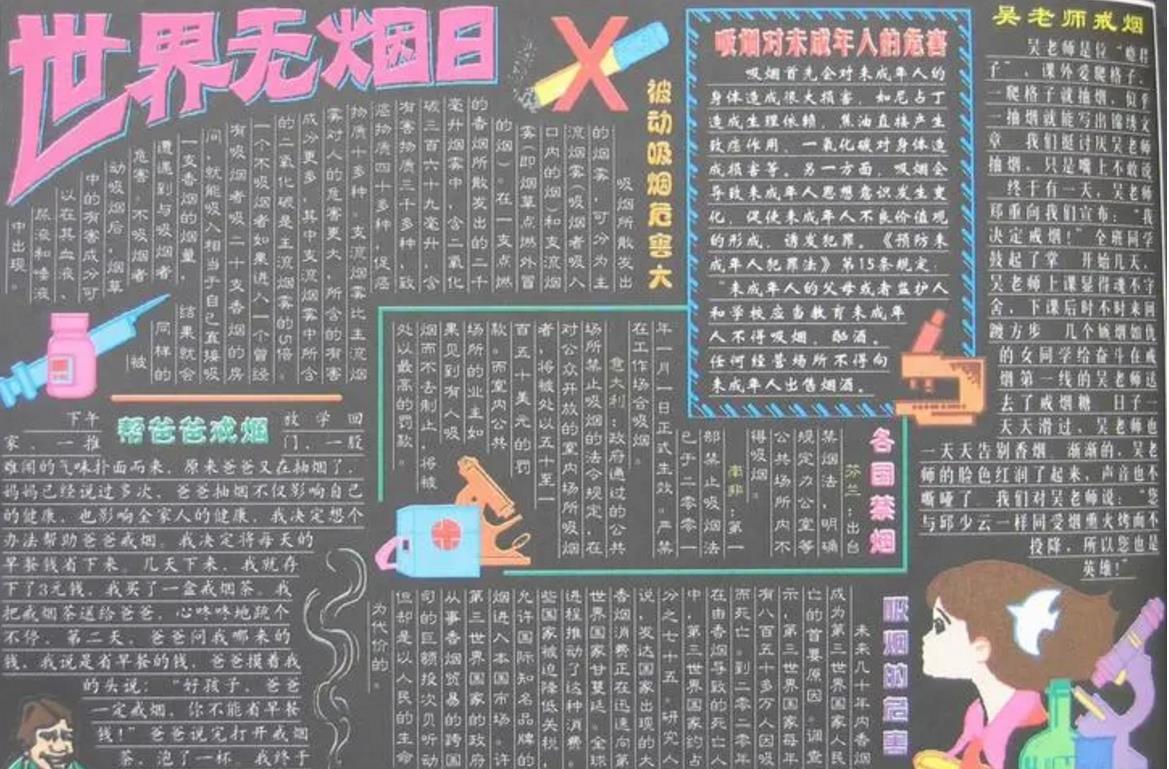 世界无烟日
被动吸烟危害大
吸烟所散发出
的烟雾，可分为主
流烟雾（吸烟者吸入
口内的烟）和支流烟
雾（即烟草点燃外冒
的烟）。在一支点燃
的香烟所散发出的二千
毫升烟雾中，含二氧化
碳三百六十九毫升，含
有害物质三千多种，致
癌物质四十多种，促癌
物质十多种。支流烟雾比主流烟
雾对人的危害更大，所含的有害
成分更多，其中支流烟雾中所含
的二氧化碳是主流烟雾的5倍。
一个不吸烟者如果进入一个曾经
有吸烟者吸二十支香烟的房
间，就能吸入相当于自己直接吸
一支香烟的烟量，结果就会
遭遇到与吸烟者同样的
危害。不吸烟者被
动吸烟后，烟草
中的有害成分可
以在其血液、
尿液和唾液
中出现。
吸烟对未成年人的危害
吸烟首先会对未成年人的
身体造成很大损害，如尼占丁
造成生理依赖，焦油直接产生
致癌作用，一氧化碳对身体造
成损害等。另一方面，吸烟会
导致未成年人思想意识发生变
化，促使未成年人不良价值观
的形成，诱发犯罪。《预防未
成年人犯罪法》第15条规定：
“未成年人的父母或者监护人
和学校应当教育未成年
人不得吸烟、酗酒。
任何经营场所不得向
未成年人出售烟酒。
吴老师戒烟
吴老师是位“瘾
子”，课外爱爬格子，
一爬格子就抽烟，似乎
一抽烟就能写出锦绣文
章 我们挺讨厌吴老师
抽烟，只是嘴上不敢说
终于有一天，吴老师
郑重向我们宣布：“我
决定戒烟！”全班同学
鼓起了掌 开始几天，
吴老师上课显得魂不守
舍，下课后时不时来回
踱方步 几个嫉烟如仇
的女同学给奋斗在戒
烟第一线的吴老师送
去了戒烟糖 日子一
天天滑过，吴老师也
一天天告别香烟 渐渐的，吴老
师的脸色红润了起来，声音也不
嘶哑了 我们对吴老师说：“您
与邱少云一样同受烟熏火烤而不
投降，所以您也是
英雄！”
帮爸爸戒烟
下午放学回
家，一推门，一股
难闻的气味扑面而来，原来爸爸又在抽烟了，
妈妈已经说过多次，爸爸抽烟不仅影响自己
的健康，也影响全家人的健康，我决定想个
办法帮助爸爸戒烟。我决定将每天的
早餐钱省下来，几天下来，我就存
下了3元钱，我买了一盒戒烟茶。我
把戒烟茶送给爸爸，心咚咚地跳个
不停，第二天，爸爸问我哪来的
钱，我说是省早餐的钱，爸爸摸着我
的头说：“好孩子，爸爸
一定戒烟，你不能省早餐
钱！”爸爸说完打开戒烟
茶，泡了一杯，我终于
各国禁烟
芬兰：出台
禁烟法，明确
规定办公室等
公共场所内不
得吸烟。
南非：第一
部禁止吸烟法
已于二零零一
年一月一日正式生效。严禁
在工作场合吸烟。
意大利：政府通过的公共
场所禁止吸烟的法令规定，在
对公众开放的室内场所吸烟
者，将被处以五十至一
百五十美元的罚
款。而室内公共
场所的业主如
果见到有人吸
烟而不去制止，将被
处以最高的罚款。
吸烟的危害
未来几十年内香烟
成为第三世界国家人民
亡的首要原因。调查
示，第三世界国家每年
有八百五十多万人因吸
而死亡。到二零二零年
在由香烟导致的死亡人
中，第三世界国家约占
分之七十五。研究人
说，发达国家出现的大
香烟消费正在迅速向第
世界国家甘蔓延。全球
进程推动了这种消费
些国家被迫降低关税，
允许国际知名品牌的
烟进入本国市场。许
第三世界国家的政府
从事香烟贸易的跨国
司的巨额投次贝听动
但却是以人民的生命
为代价的。